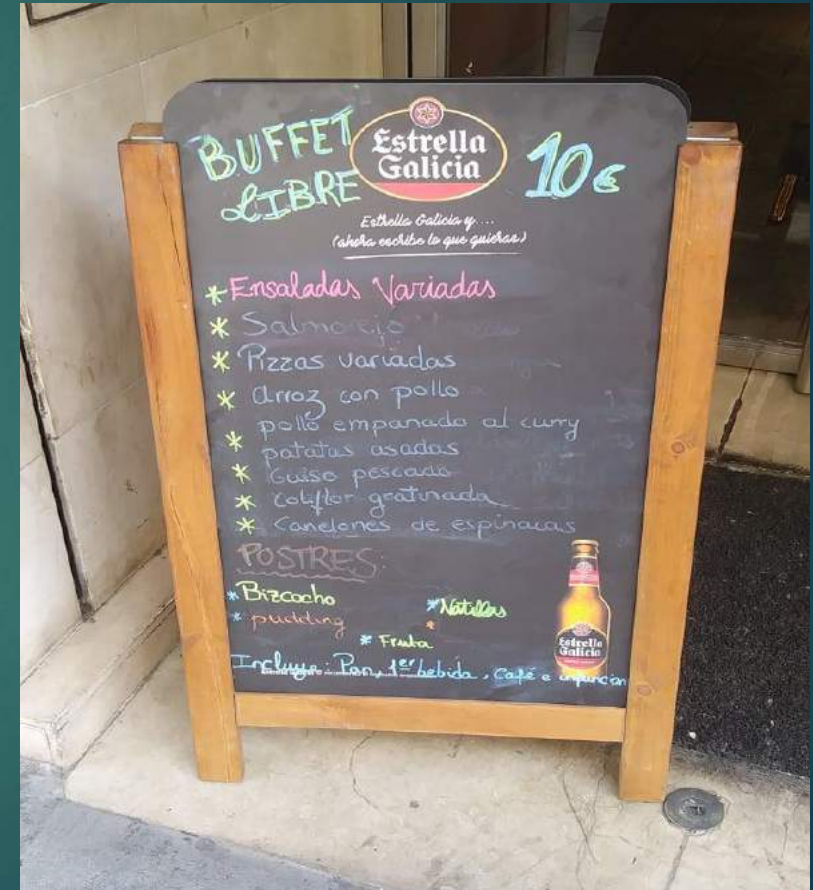 BUFFET
LIBRE
Estrella
Galicia
10€
Estrella Galicia y...
(ahora escribe lo que quieras)
* Ensaladas Variadas
* Salmorejo
* Pizzas variadas
* Arroz con pollo
pollo empanado al curry
* patatas asadas
* Guiso pescado
* Coliflor gratinada
* Canelones de espinacas
POSTRES:
* Bizcocho
* Natillas
* pudding
* Fruta
Incluye: Pan, 1er bebida, Café e
Estrella
Galicia